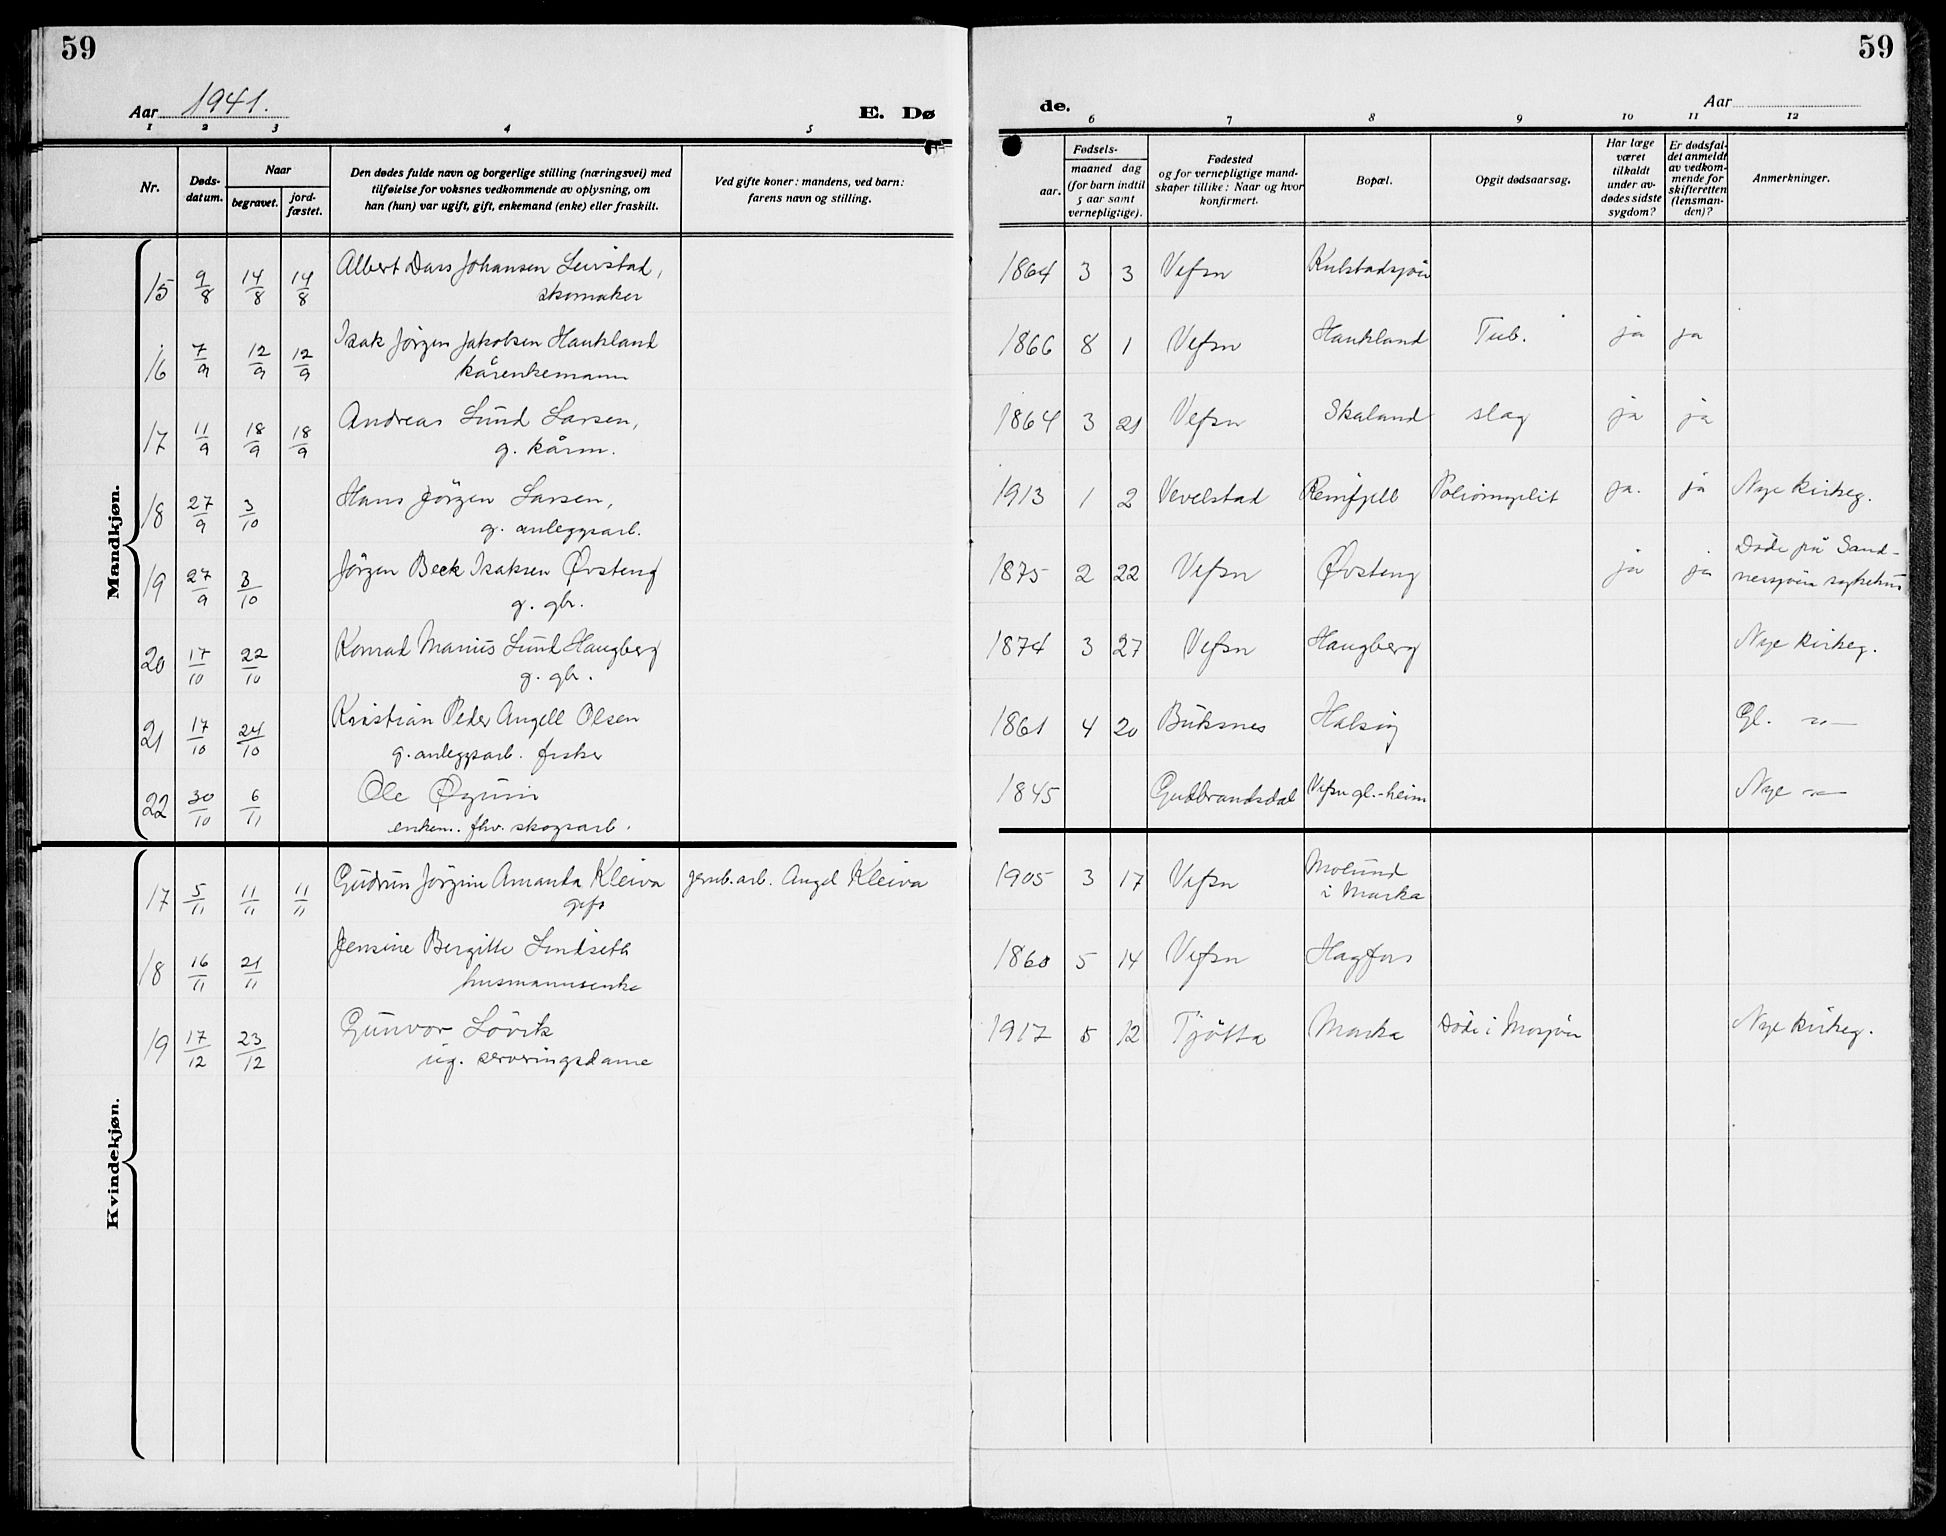 59
59
Aar 1941.
E. Dø
de.
Aar
1 2 3 4 5
6 7 8 9 10 11 12
Nr.
Døds-
datum.
Naar
begravet.
jord-
fæstet.
Den dødes fulde navn og borgerlige stilling (næringsvei) med
tilføielse for voksnes vedkommende av oplysning, om
han (hun) var ugift, gift, enkemand (enke) eller fraskilt.
Ved gifte koner: mandens, ved barn:
farens navn og stilling.
Fødsels-
aar.
maaned dag
(for barn indtil
5 aar samt
vernepligtige).
Fødested
og for vernepligtige mand-
skaper tillike: Naar og hvor
konfirmert.
Bopæl.
Opgit dødsaarsag.
Har læge
været
tilkaldt
under av-
dødes sidste
sygdom?
Er dødsfal-
det anmeldt
av vedkom-
mende for
skifteretten
(lensman-
den)?
Anmerkninger.
Mandkjøn.
15 9/8 14/8 14/8 Albert Johansen
skomaker
1864 3 3 Vefsn Kulstadsjøen
16 7/9 12/9 12/9 Isak Jörgen Jakobsen Haukland
kårenkemann
1866 8 1 Vefsn Haukland Tub. ja ja
17 11/9 18/9 18/9 Andreas Lund Larsen,
g. kårm.
1864 3 21 Vefsn Skaland slag ja ja
18 27/9 3/10 Hans Jörgen Larsen,
g. anleggsarb.
1913 1 2 Vevelstad Reinfjell Poliomyelit ja. ja Nye kirkeg.
19 27/9 3/10 Jörgen Beck Isaksen Østeng
g. gbr.
1875 2 22 Vefsn Østeng ja ja Döde på Sand-
nessjøen sykehus
20 17/10 22/10 Konrad Marius Lund Haugberg
g. gbr.
1874 3 27 Vefsn Haugberg Nye kirkeg.
21 17/10 24/10 Kristian Peder Angell Olsen
g. anleggsarb. fisker
1861 4 20 Buksnes Halsøy Gl. —
22 30/10 6/11 Ole
enkem. fhv. skogsarb.
1845 Gudbrandsdal Vefsn gl.-heim Nye —
Kvindekjøn.
17 5/11 11/11 11/11 Gudrun Jörgine Amanda Kleiva
gift
jernb.arb. Angel Kleiva
1905 3 17 Vefsn Molund
i Marka
18 16/11 21/11 Jensine Bergitte Lindseth
husmannsenke
1860 5 14 Vefsn Hagfors
19 17/12 23/12 Gunvor Lövik
ug. serveringsdame
1917 5 12 Tjötta Marka Döde i Mosjøen Nye kirkeg.